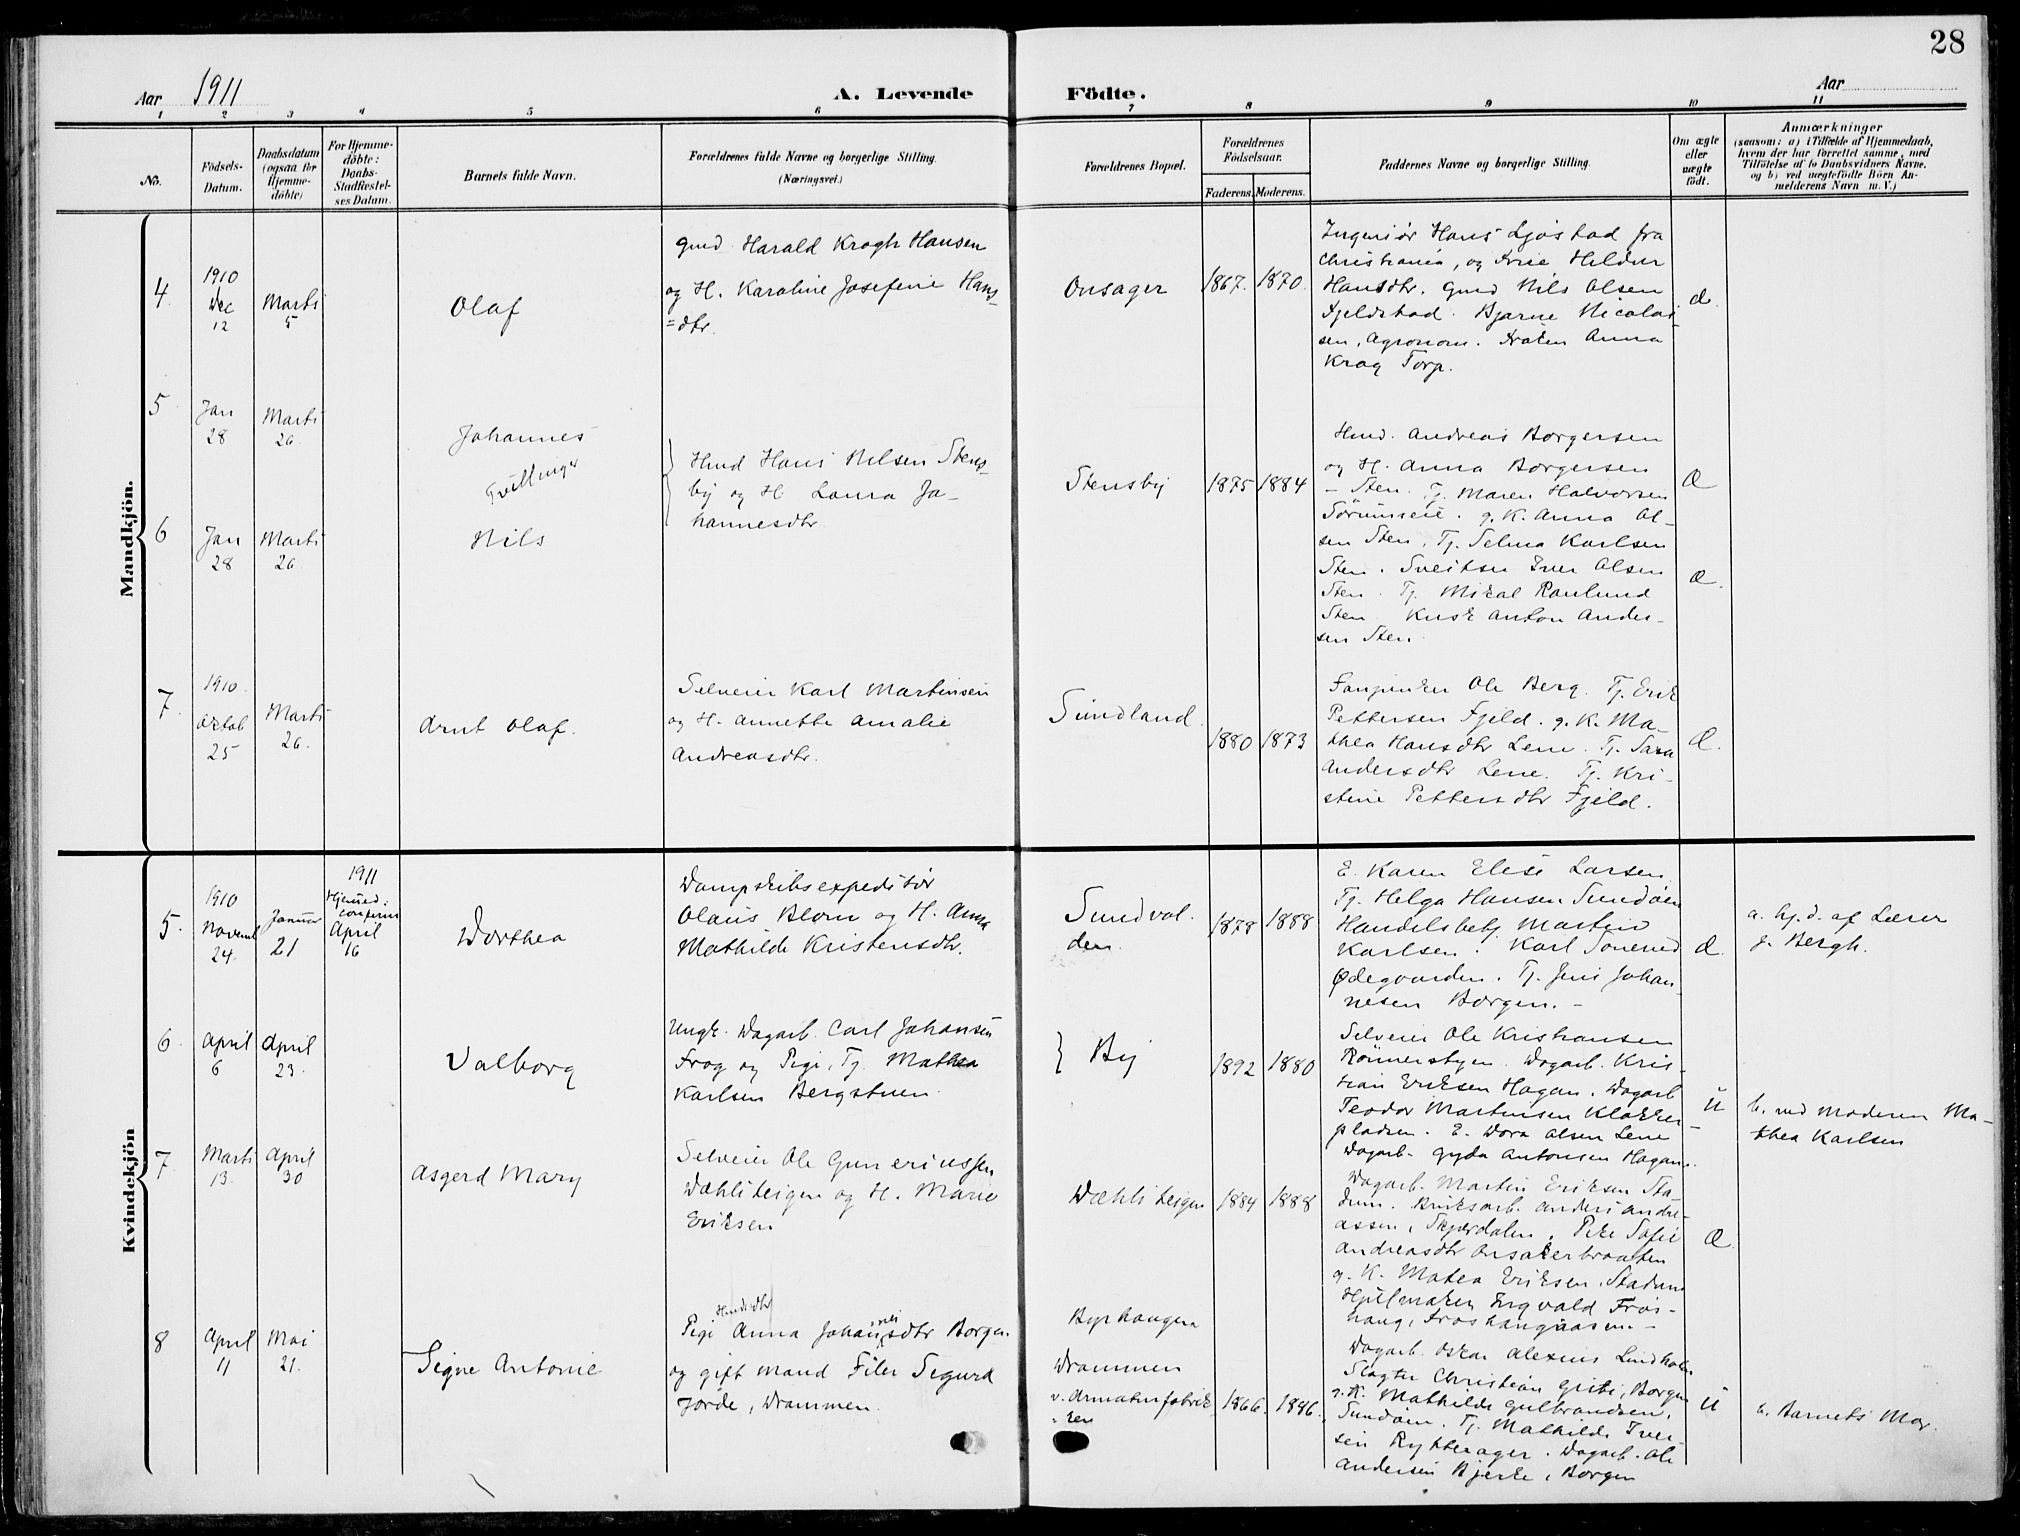 28
Aar 1911
A. Levende Födte.
Aar
1 2 3 4 5 6 7 8 9 10 11
No.
Födsels-
Datum.
Daabsdatum
(ogsaa for
Hjemme-
döbte)
For Hjemme-
döbte:
Daabs-
Stadfæstel-
ses Datum.
Barnets fulde Navn.
Forældrenes fulde Navne og borgerlige Stilling.
(Næringsvei.)
Forældrenes Bopæl.
Forældrenes
Födselsaar.
Faderens. Moderens.
Faddernes Navne og borgerlige Stilling.
Om ægte
eller
uægte
födt.
Anmærkninger
(saasom: a) i Tilfælde af Hjemmedaab,
hvem der har forrettet samme, med
Tilföielse af to Daabsvidners Navne,
og b) ved uægtefödte Börn An-
melderens Navn m. V.)
Mandkjön.
4.
1910
Dec
12
Marts
5
Olaf
Gmd. Harald Kragh Hansen
og H. Karoline Josefine Hans
=dtr.
Onsager
1867. 1870.
Ingeniör Hans Gjöstad fra
Christiania, og Frue Hildur
Hansdtr. Gmd Nils Olsen
Fjeldstad. Bjarne Nicolai-
sen, Agronom. Fröken Anna
Krag Torp.
æ.
5.
Jan
28
Marts
26
Johannes
Tvillinger
6
Jan
28
Marts
26
Nils
Hmd Hans Nilsen Stens-
by og H. Laura Jo-
hannesdtr
Stensby
1875 1884
Hmd. Andreas Borgersen
og H. Anna Borgersen
- Sten. Tj. Maren Halvorsen
Sörumseie. g. K. Anna Ol-
sen Sten, Tj. Selma Karlsen
Sten. Sveitser Iver Olsen
Sten. Tj. Mikal Paulund
Sten Kusk Anton Ander-
sen Sten.
Æ
Æ.
7.
1910.
Oktob
25
Marts
26.
Arnt Olaf.
Selveier Karl Martinsen
og H. Annette Amalie
Andreasdtr.
Sundland
1880 1873
Ole Berg. Tj. Erik
Pettersen Fjeld. g. K. Ma-
thea Hansdtr Lene. Tj. Sara
Andersdtr Lene. Tj. Kri-
stine Pettersdtr Fjeld.
Æ.
Kvindekjön
5.
1910
Novemb
24.
Januar
21
1911
Hjemmed:
confirm
April
16
Dorthea
Dampskibsexpeditör
Olaus Blom og H. Anna
Mathilde Kristensdtr.
Sundvol-
den.
1878 1888
E. Karen Elise Larsen,
Tj. Helga Hansen Sundöen
Handelsbetj. Martin
Karlsen. Karl Sönerud
Ödegaarden. Tj. Jens Johan-
nesen Borgen. -
Æ.
a. hj. d. af Lærer
J. Bergh.
6.
April
6
April
23.
Valborg
Ungk. Dagarb. Carl Johansen
Frog og Pige, Tj. Mathea
Karlsen Bergstuen.
By
1892 1880
Selveier Ole Kristiansen
Römerstyen. Dagarb. Kris-
tian Eriksen Hagan. Dagarb
Teodor Martinsen Klokker-
pladsen. E. Dora Olsen Lene
Dagarb. Gyda Antonsen Hagan.
U
b. ved Moderen Ma-
thea Karlsen
7.
Marts
13.
April
30
Asgerd Mary
Selveier Ole Guneriussen
Dæhliteigen og H. Marie
Eriksen
Dæhliteigen
1884 1888
Dagarb. Martin Eriksen Sta-
dum. Bruksarb. Anders Andre-
assen, Skjærdalen. Pike Sofie
Andreasdtr Onsakerbraaten
g. K. Matea Eriksen, Stadum
Hjulmaker Ingvald Frös-
haug, Fröshaugaasen -
Æ.
8
April
11
Mai
21.
Signe Antonie
Pige Anna Johannesdtr Borgen
og gift Mand Filer Sigurd
Jorde, Drammen.
Byrhaugen
Drammen
v. Armaturfabrik-
ken
1866. 1886.
Dagarb. Oskar Alexius Lindholm
Slagter Christian Griti, Borgen
g. K. Mathilde Gulbrandsen,
Sundöen. Tj. Mathilde Iver-
sen Rytterager. Dagarb. Ole
Andersen Bjerke, Borgen
U
b. Barnets Mor.